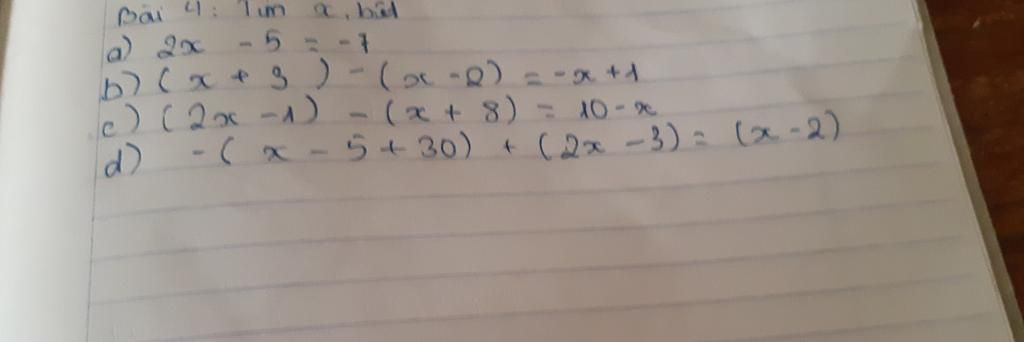 Bài 4: Tìm x, biết
a) 2x - 5 = -7
b) (x + 3) - (x - 2) = -x + 1
c) (2x - 1) - (x + 8) = 10 - x
d) -(x - 5 + 30) + (2x - 3) = (x - 2)